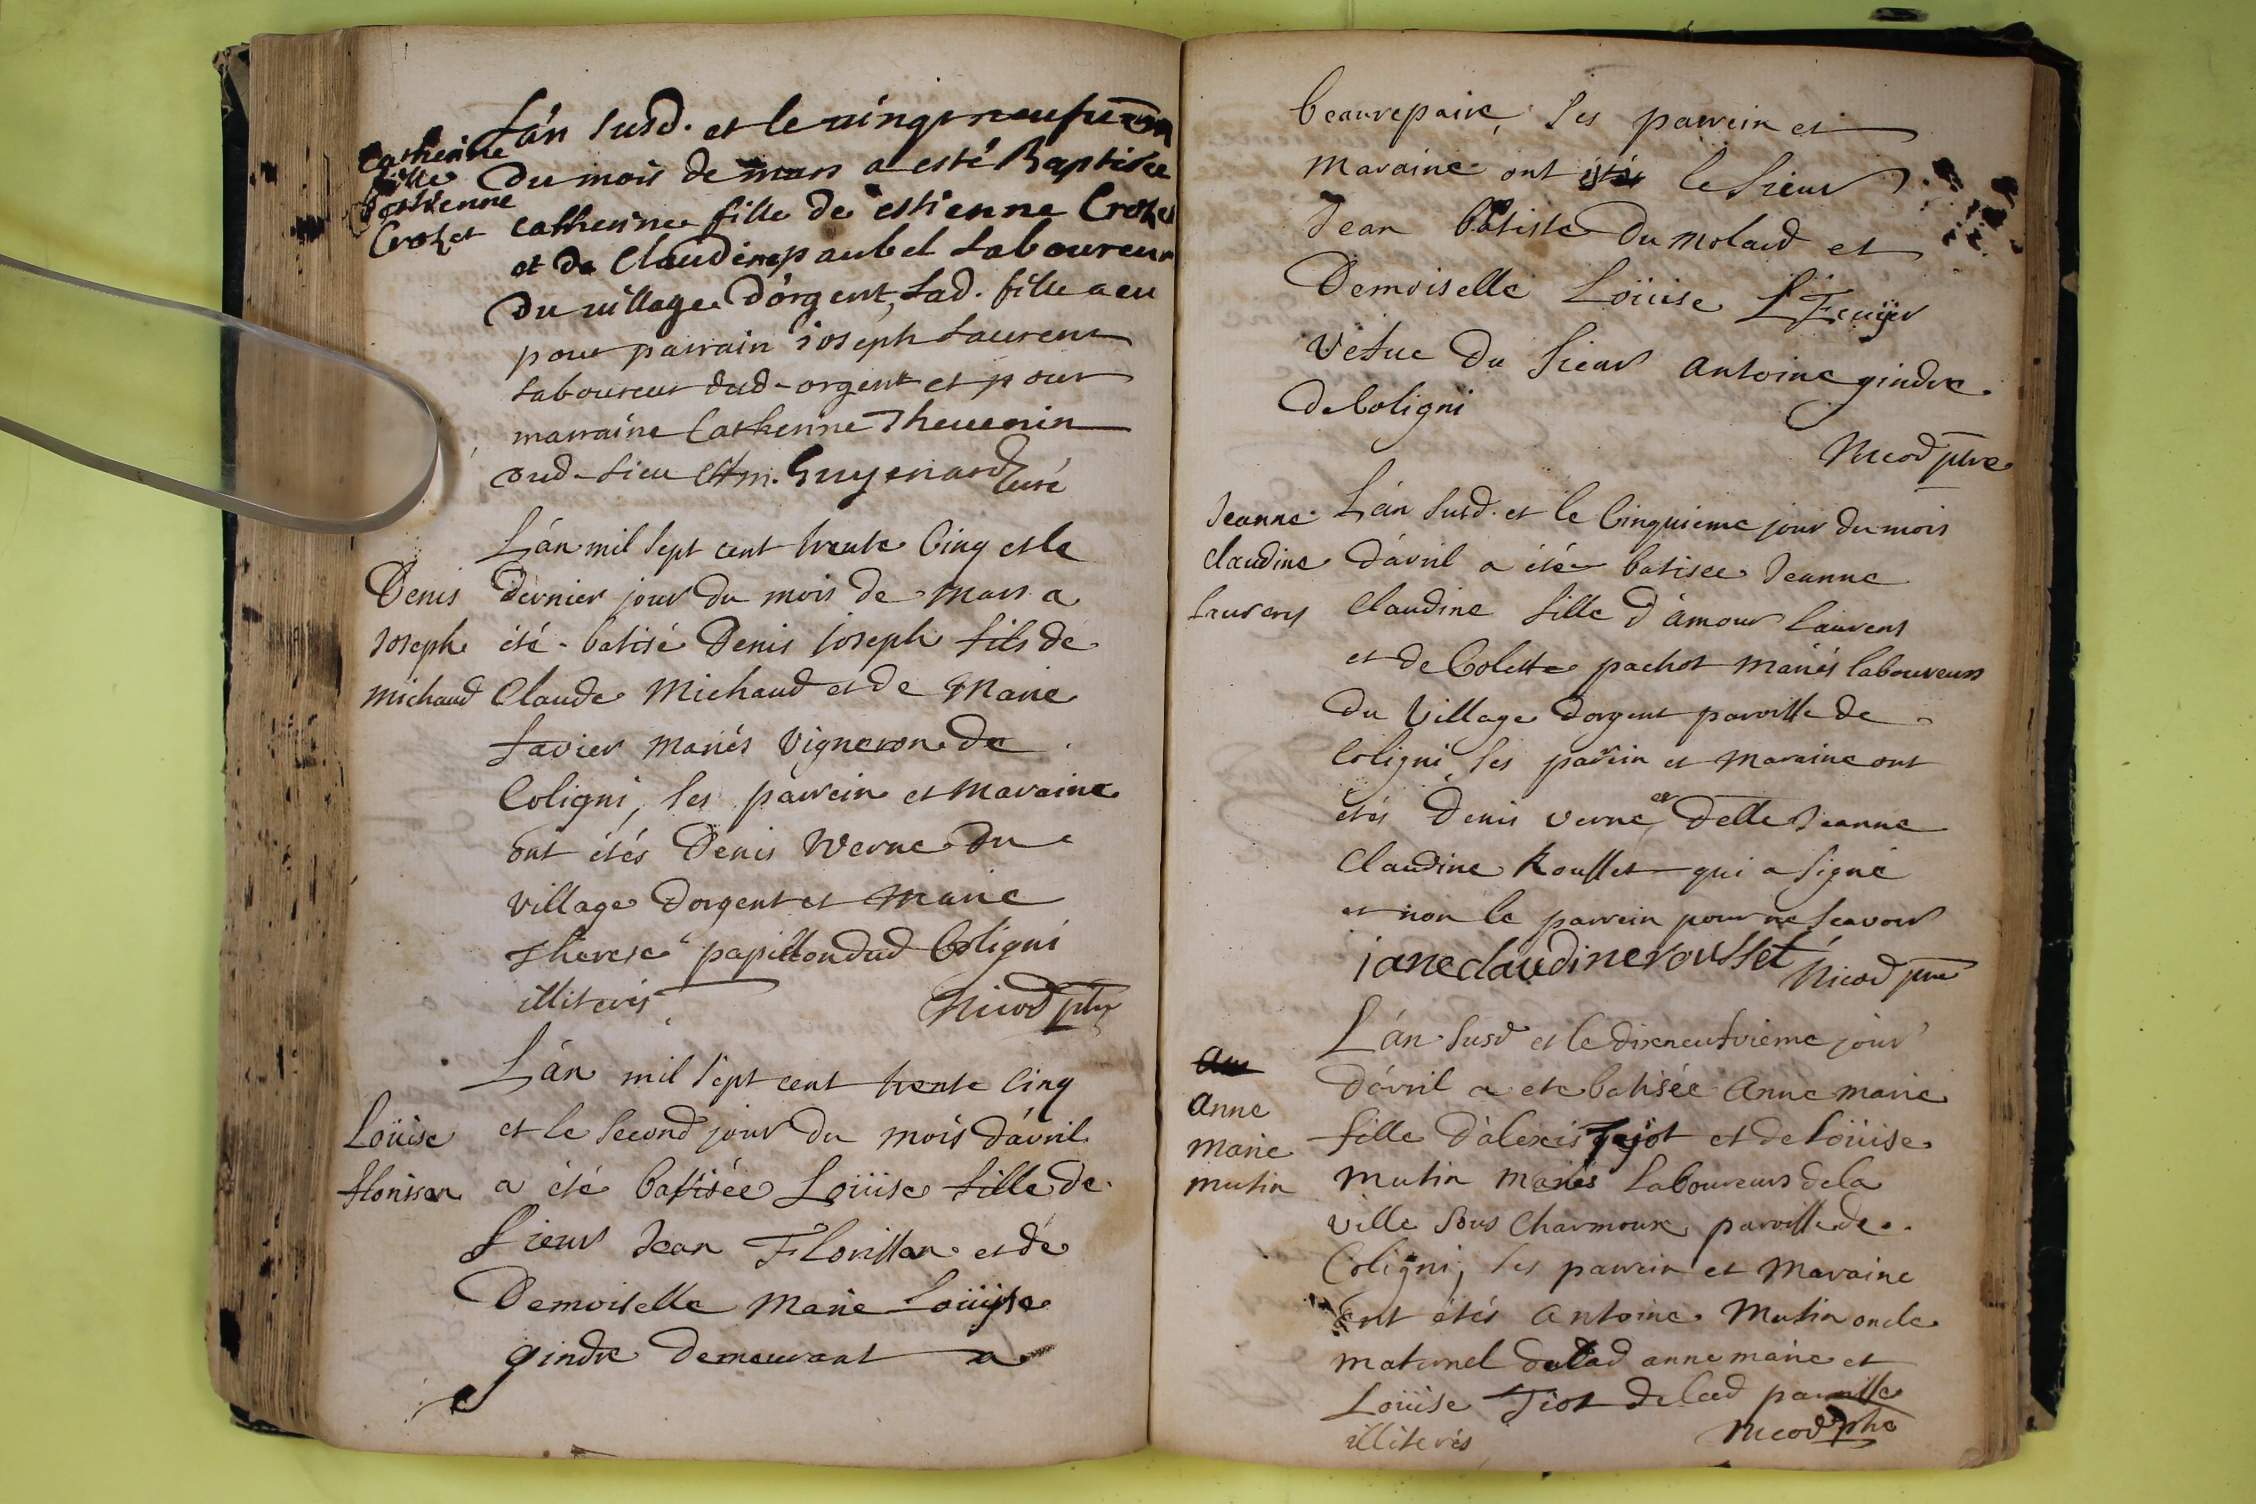 Catherine
fille
d'estienne
Crozet
L'án susd. et le vingt neufuiem
Du mois de mars a esté Baptisée
catherine fille de estienne Crozet
et de Claudine paubel Laboureur
Du village d'orgent, Lad. fille a eu
pour parrain joseph Laurent
Laboureur dud. orgent et pour
marraine Catherine Thevenin
dud. Lieu Guyenard Curé
Denis
Joseph
Michaud
L'án mil sept cent trente Cinq et le
Dernier jour du mois de Mars a
été batisé Denis Joseph fils de
Claude Michaud et de Marie
Favier Mariés Vigneron de
Coligni, ses parrein et Maraine
ont étés Denis Verne Du
Village dorgent et Marie
Therese papillon dud Coligni
illiterés Nicod ptre
Loüise
florissan
L'án mil sept cent trente Cinq
et le second jour du mois d'ávril
a été batisée Loüise fille de
Sieur Jean Florissan et de
Demoiselle Marie Loüise
gindre demeurant a
beaurepaire, ses parrein et
Maraine ont étés le Sieur
Jean batiste Du Molard et
Demoiselle Loüise L'Ecuÿer
Vefue du Sieur antoine gindre
de Coligni
Nicod ptre
Jeanne
Claudine
Laurens
L'án susd. et le Cinquieme jour du mois
d'ávril a été batisée Jeanne
Claudine fille d'ámour Laurens
et de Colette pachot Mariés laboureurs
du Village dorgent paroisse de
Coligni, ses parein et Maraine ont
étés Denis Verne, et Delle Jeanne
Claudine Rousset qui a signé
et non le parrein pour ne scavoir
iane claudine rousset Nicod ptre
Anne
Marie
Mutin
L'án susd et le dixneufvieme jour
d'ávril a ete batisée Anne Marie
fille d'álexis Tejot et de Loüise
Mutin Mariés Laboureurs de la
Ville sous Charmoux, paroisse de
Coligni, ses parrein et Maraine
ont étés Antoine Mutin oncle
Maternel de lad anne marie et
Loüise Tiot de lad paroisse
illiterés Nicod ptre